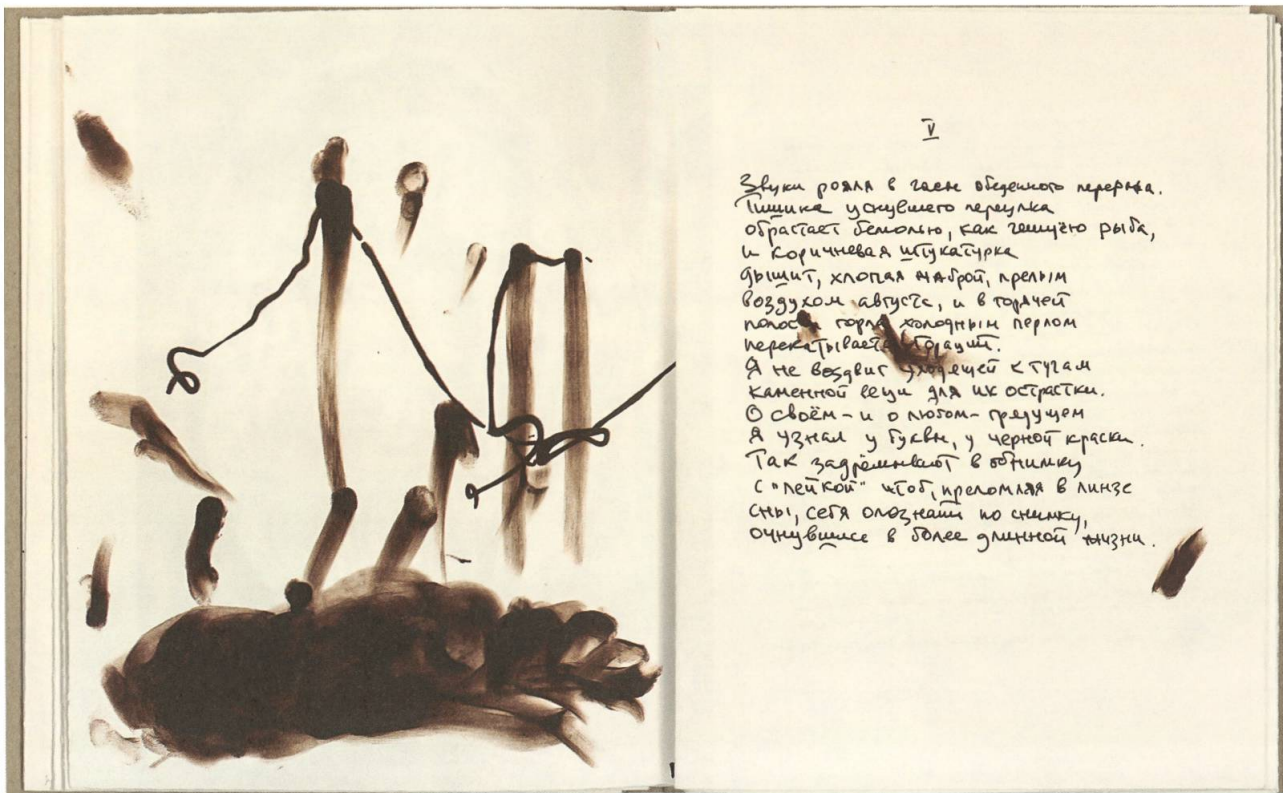 V
Звуки рояля в часы обеденного перерыва.
Тишина уснувшего переулка
обрастает бемолью, как чешуёю рыба,
и коричневая штукатурка
дышит, хлопая жаброй, прелым
воздухом августа, и в горячей
полости горла холодным перлом
перекатывается Гораций.
Я не воздвиг уходящей к тучам
каменной вещи для их острастки.
О своём - и о любом - грядущем
я узнал у буквы, у чёрной краски.
Так задрёмывают в обнимку
с "лейкой" чтоб, преломляя в линзе
сны, себя опознать по снимку,
очнувшись в более длинной жизни.